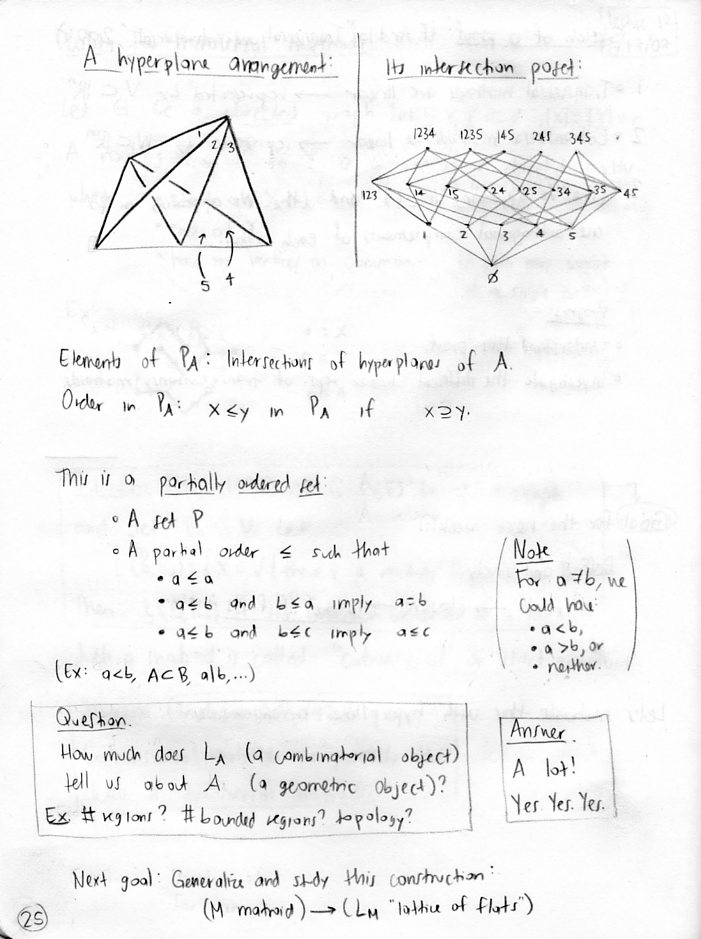 A hyperplane arrangement:
1 2 3
5 4
Its intersection poset:
1234 1235 145 245 345
123 14 15 24 25 34 35 45
1 2 3 4 5
∅
Elements of P_A: Intersections of hyperplanes of A.
Order in P_A: x ≤ y in P_A if x ⊇ y.
This is a partially ordered set:
◦ A set P
◦ A partial order ≤ such that
• a ≤ a
• a ≤ b and b ≤ a imply a = b
• a ≤ b and b ≤ c imply a ≤ c
(Ex: a<b, A⊂B, a|b, ...)
Note
For a ≠ b, we
could have:
• a < b,
• a > b, or
• neither.
Question.
How much does L_A (a combinatorial object)
tell us about A (a geometric object)?
Ex. # regions? # bounded regions? topology?
Answer.
A lot!
Yes. Yes. Yes.
Next goal: Generalize and study this construction:
(M matroid) → (L_M "lattice of flats")
25